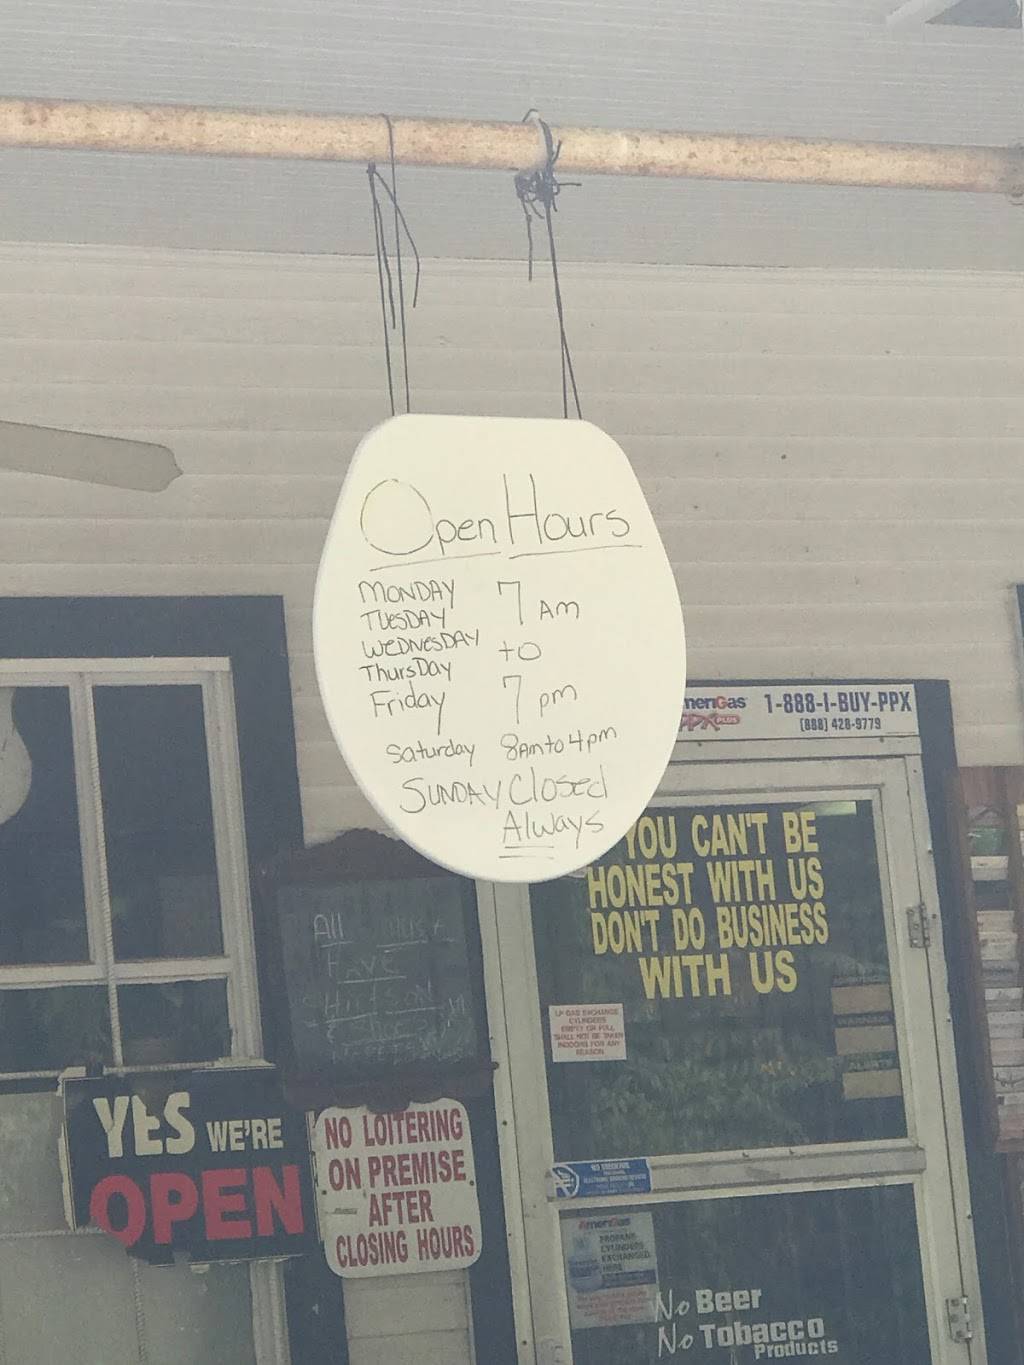 Open Hours
MONDAY
TUESDAY
WEDNESDAY
ThursDay
Friday
7 Am
to
7 pm
Saturday 8Am to 4pm
SUNDAY Closed
Always
meriGas
PPX PLUS
1-888-I-BUY-PPX
[888] 428-9779
YOU CAN'T BE
HONEST WITH US
DON'T DO BUSINESS
WITH US
LP GAS EXCHANGE
CYLINDERS
EMPTY OR FULL
SHALL NOT BE TAKEN
INDOORS FOR ANY
REASON
WARNING
ALERT
All Must
HAVE
Shirts ON
YES WE'RE
OPEN
NO LOITERING
ON PREMISE
AFTER
CLOSING HOURS
NO SMOKING
AmeriGas
PROPANE
CYLINDERS
EXCHANGED
HERE
No Beer
No Tobacco
Products